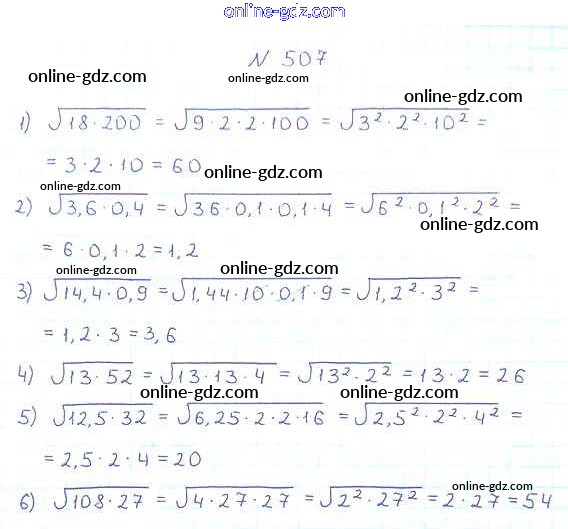 online-gdz.com
N 507
online-gdz.com online-gdz.com
online-gdz.com
1) √18·200 = √9·2·2·100 = √3²·2²·10² =
= 3·2·10 = 60 online-gdz.com
online-gdz.com
2) √3,6·0,4 = √36·0,1·0,1·4 = √6²·0,1²·2² =
online-gdz.com
= 6·0,1·2 = 1,2
online-gdz.com online-gdz.com
3) √14,4·0,9 = √1,44·10·0,1·9 = √1,2²·3² =
= 1,2·3 = 3,6 online-gdz.com
4) √13·52 = √13·13·4 = √13²·2² = 13·2 = 26
online-gdz.com online-gdz.com
5) √12,5·32 = √6,25·2·2·16 = √2,5²·2²·4² =
= 2,5·2·4 = 20
online-gdz.com online-gdz.com
6) √108·27 = √4·27·27 = √2²·27² = 2·27 = 54
online-gdz.com